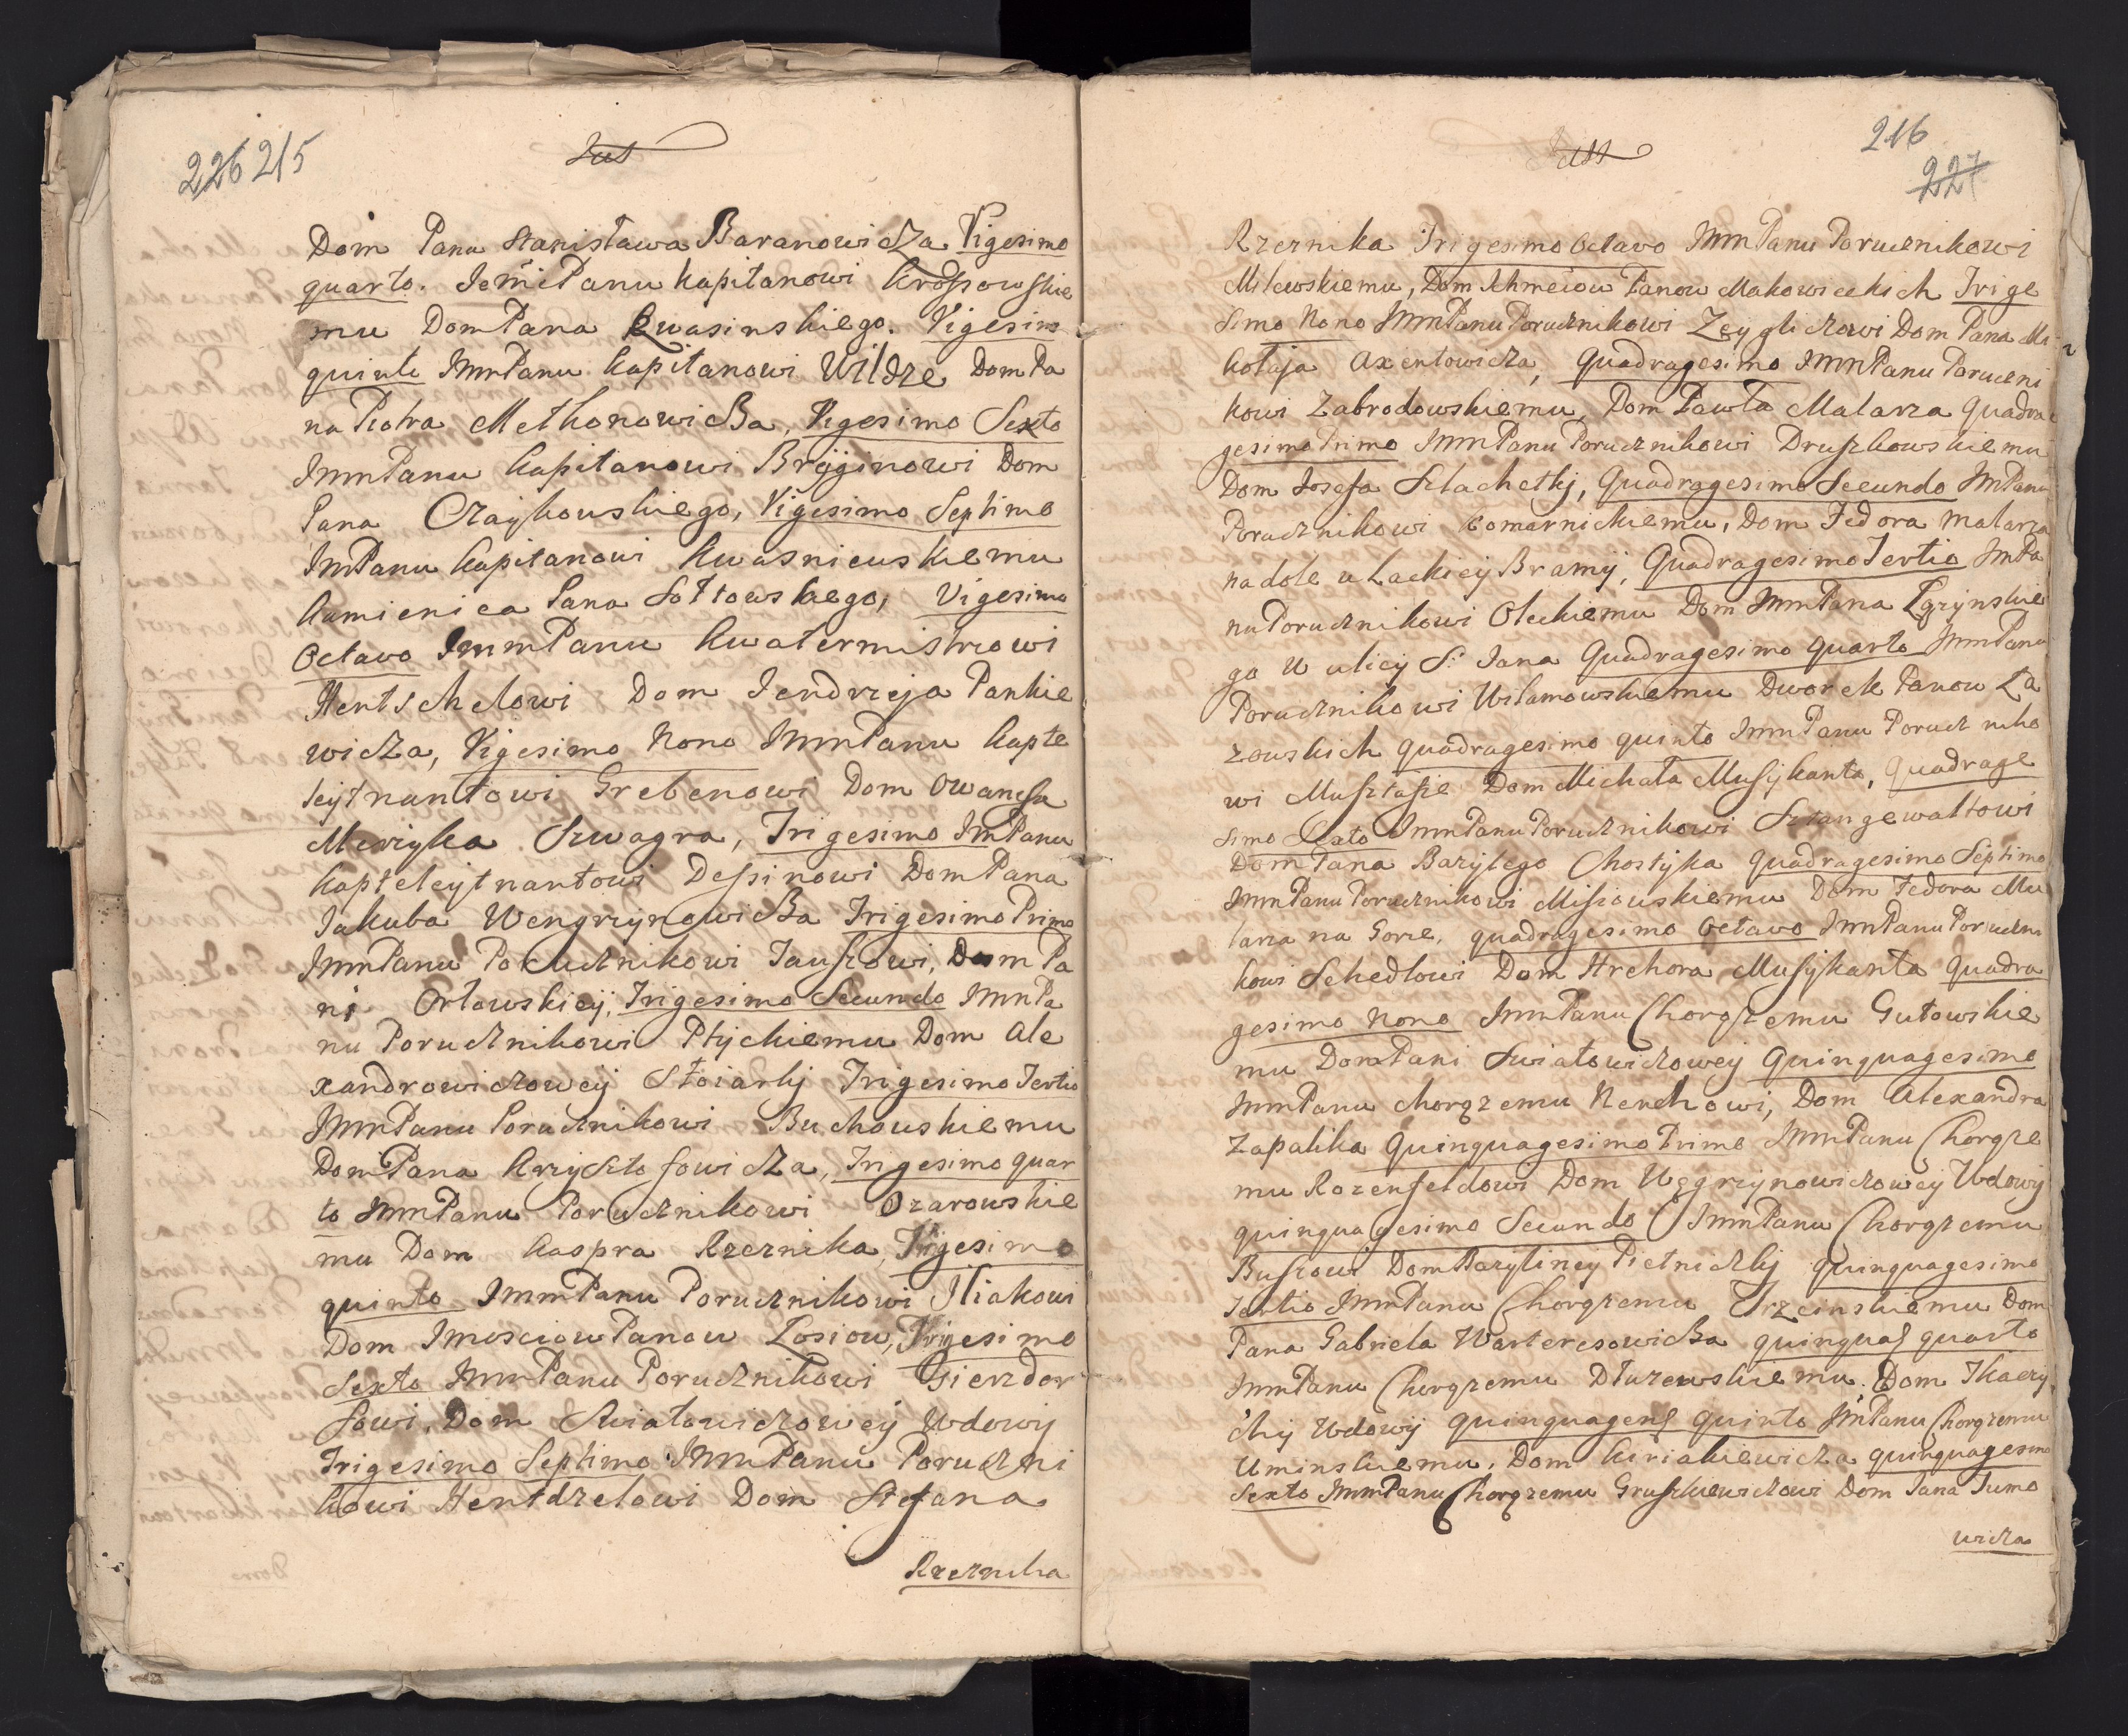 226 215
Dom Pana Stanisława Baranowicza Vigesimo
quarto. Jemci Panu Kapitanowi Krossowskie
mu Dom Pana Kwasinskiego. Vigesim
quinto Jmm Panu Kapitanowi Wildze Dom Pa
na Piotra Methonowicza, Vigesimo Sexto
Jmm Panu Kapitanowi Bryginowi Dom
Pana Czaykowskiego, Vigesimo Septimo
Jm Panu Kapitanowi Kwasniewskiemu
Kamienica Pana Sołtowskiego, Vigesimo
Octavo Jmm Panu Kwatermistrzowi
Hentschelowi Dom Jendrzeja Pankie
wicza, Vigesimo Nono Jmm Panu Kapte
leytnantowi Grebenowi Dom Owanesa
Merzyka Szwagra, Trigesimo Jm Panu
Kapteleytnantowi Dessinowi Dom Pana
Jakuba Wengrzynowicza Trigesimo Primo
Jmm Panu Porucznikowi Tauszowi, Dom Pa
ni Orłowskiey, Trigesimo Secundo Jmm Pa
nu Porucznikowi Ptyckiemu Dom Ale
xandrowiczowey Stoiarky Trigesimo Tertio
Jmm Panu Porucznikowi Buchowskiemu
Dom Pana Krzysztofowicza, Trigesimo quar
to Jmm Panu Porucznikowi Ozarowskie
mu Dom Kaspra Rzeznika, Trigesimo
quinto Jmm Panu Porucznikowi Iliakowi
Dom Jmosciow Panow Łosiow, Trigesimo
Sexto Jmm Panu Porucznikowi Gierzdor
fowi, Dom Swiatowiczowey Wdowy
Trigesimo Septimo Jmm Panu Poruczni
kowi Hentdzelowi Dom Stefana
Rzeznika
216
227
Rzeznika Trigesimo Octavo Jmm Panu Porucznikowi
Milewskiemu, Dom Ichmciow Panow Makowieckich Trige
simo Nono Jmm Panu Porucznikowi Zeygliczowi Dom Pana Mi
kołaja Axentowicza, Quadragesimo Jmm Panu Poruczni
kowi Zabrodowskiemu, Dom Pawła Malarza Quadra
gesimo Primo Jmm Panu Porucznikowi Druszkowskiemu
Dom Josefa Szlachetky, Quadragesimo Secundo Jm Panu
Porucznikowi Komarnickiemu, Dom Fedora Malarza
na dole u Lackiey Bramy, Quadragesimo Tertio Jm Pa
nu Porucznikowi Oleckiemu Dom Jmm Pana Zgrzynskie
go w ulicy S: Jana Quadragesimo quarto Jmm Panu
Porucznikowi Wilamowskiemu Dworek Panow Ła
zowskich quadragesimo quinto Jmm Panu Poruczniko
wi Musztasze Dom Michała Musykanta, Quadrage
simo Sexto Jmm Panu Porucznikowi Sztangewaltowi
Dom Pana Bazylego Chostyka quadragesimo Septimo
Jmm Panu Porucznikowi Missowskiemu Dom Fedora Ma
larza na Gorze, quadragesimo Octavo Jmm Panu Poruczni
kowi Schedlowi Dom Hrehora Musykanta quadra
gesimo Nono Jmm Panu Chorążemu Gutowskie
mu Dom Pani Swiatowiczowey Quinquagesimo
Jmm Panu Chorążemu Nerchowi, Dom Alexandra
Zapalika Quinquagesimo Primo Jmm Panu Chorąże
mu Rozenfeldowi Dom Węgrzynowiczowey Wdowy
quinquagesimo Secundo Jmm Panu Chorążemu
Buszowi Dom Bazyliney Pietniczky quinquagesimo
Tertio Jmm Panu Chorążemu Trzcinskiemu Dom
Pana Gabriela Warteresowicza quinquag quarto
Jmm Panu Chorążemu Dłużewskiemu, Dom Tkaczy
chy Wdowy quinquages quinto Jm Panu Chorążemu
Uminskiemu, Dom Kiriakiewicza quinquagesimo
Sexto Jmm Panu Chorążemu Gruszkiewiczowi Dom Jana Tumo
wicza